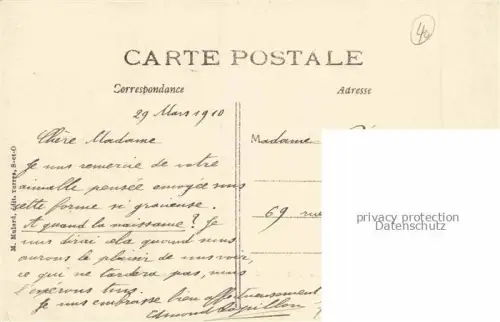 44
CARTE POSTALE
Correspondance
Adresse
29 Mars 1910
Chère Madame
Je vous remercie de votre
aimable pensée envoyée sous
cette forme si gracieuse.
Et quand la naissance ? Je
vous dirai cela quand nous
aurons le plaisir de vous voir,
ce qui ne tardera pas, nous
l'espérons tous.
Je vous embrasse bien affectueusement
Edmond Papillon
Madame
69 rue
privacy protection
Datenschutz
M. Mulard, édit. Yerres, S-et-O